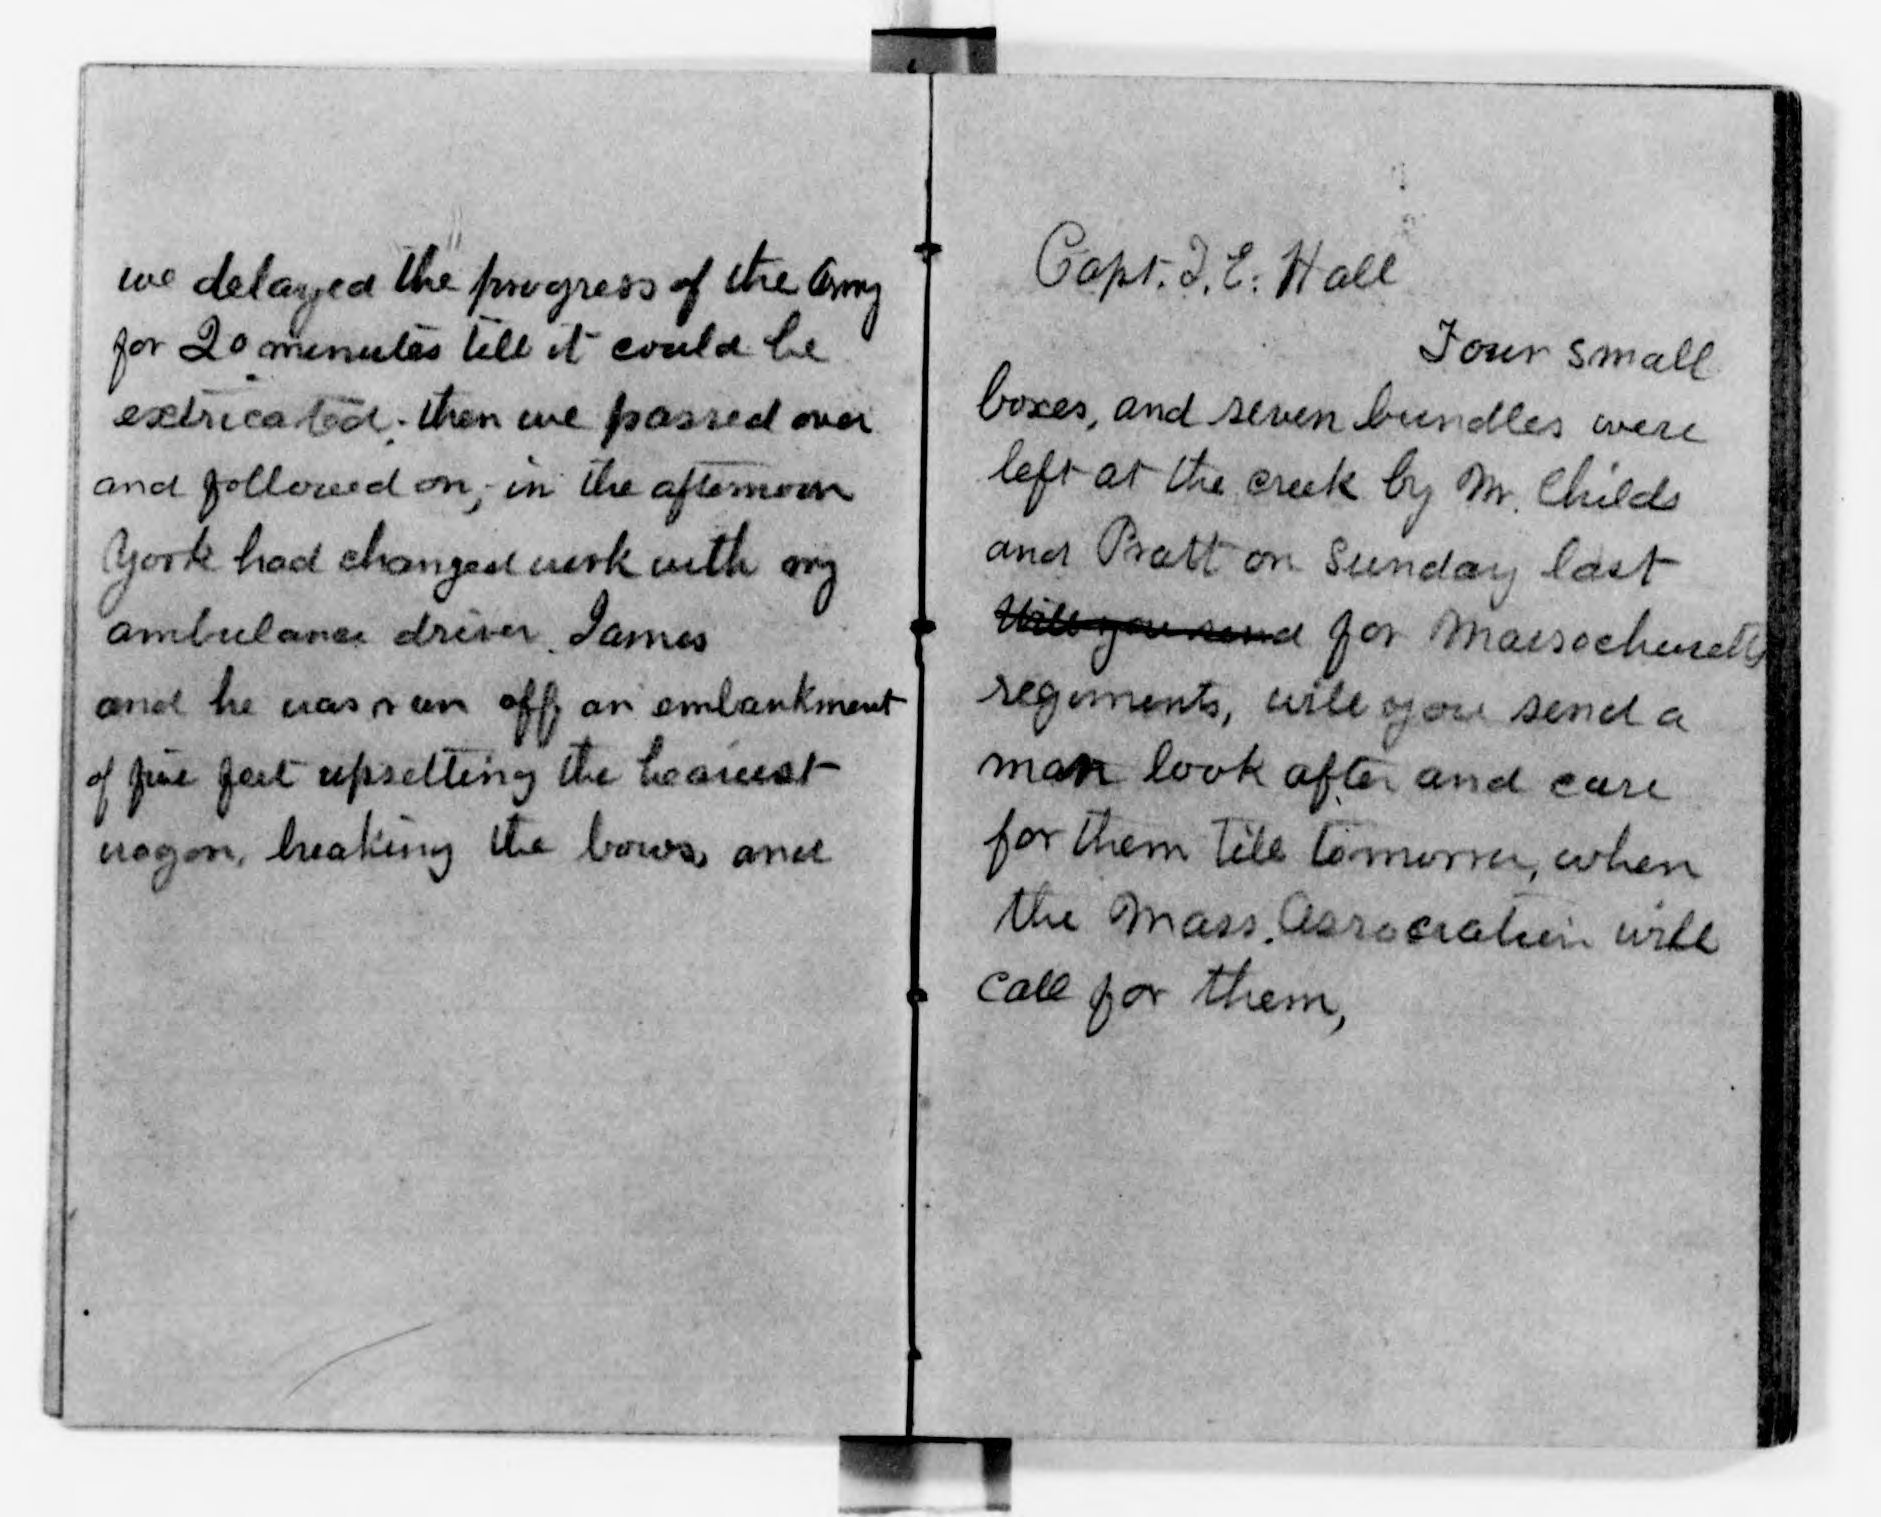 we delayed the progress of the Army
for 20 minutes till it could be
extricated; then we passed over
and followed on, - in the afternoon
York had changed work with my
ambulance driver James
and he was run off an embankment
of five feet upsetting the heaviest
wagon, breaking the bows, and
Capt. I. E. Hall
Four small
boxes, and seven bundles were
left at the creek by Mr. Childs
and Pratt on Sunday last
Will you send for Massachusetts
regiments, will you send a
man look after and care
for them till tomorrow, when
the Mass. Association will
call for them,